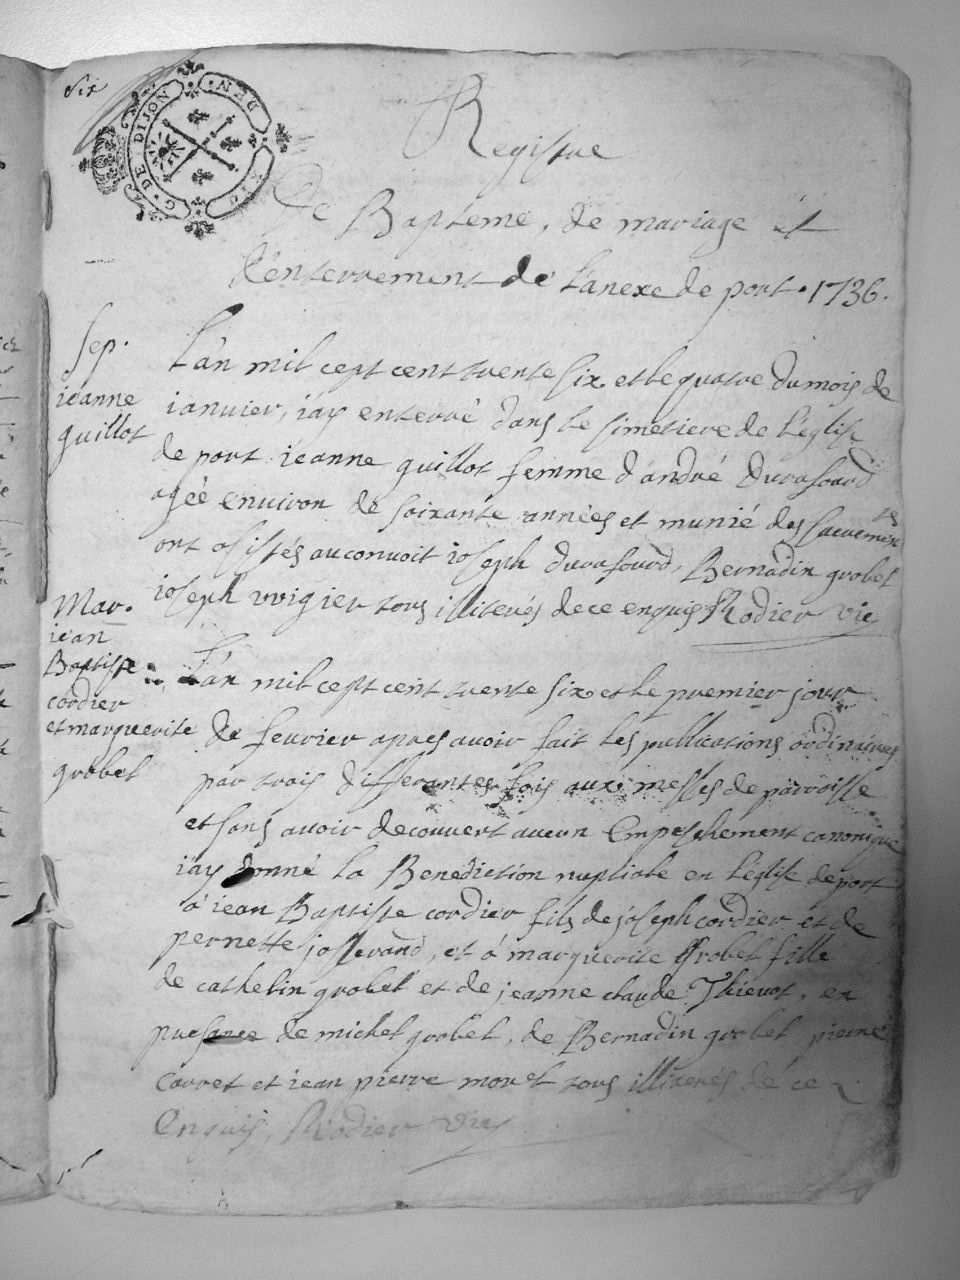 six
G. DE DIJON
DEN.
Registre
De Bapteme, de mariage et
d'enterrement de l'anexe de port. 1736.
sep.
jeanne
guillot
L'an mil cept cent trente six et le quatre du mois de
ianvier, i'ay enterré dans le simetiere de l'eglise
de port jeanne guillot femme d'andré durafourd
agéé environ de soixante années et munié des sacremen
ts
ont assistés au convoit joseph durafourd, Bernadin grobet
joseph vvigier tous illiterés de ce enquis Rodier vic
Mar.
jean
Baptiste
cordier
et marguerite
grobet
L'an mil cept cent trente six et le premier jour
de fevrier apres avoir fait les publications ordinaires
par trois differantes fois aux messes de parroisse
et sans avoir decouvert aucun Empeschement canonique
i'ay donné la Benediction nuptiale en l'eglise de port
a jean Baptiste cordier fils de joseph cordier et de
pernette josserand, et a marguerite grobet fille
de cathelin grobet et de jeanne claude Thievot, en
presance de michel grobet, de Bernadin grobet pierre
carret et jean pierre moret tous illiterés de ce
Enquis, Rodier vic